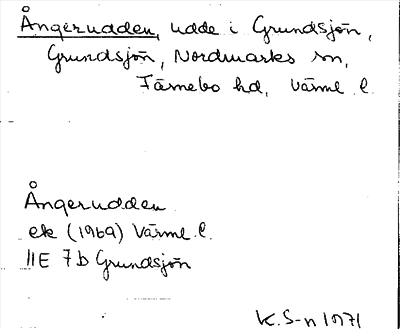 Ångerudden, udde i Grundsjön,
Grundsjön, Nordmarks sn,
Färnebo hd, Värml l.
Ångerudden
ek (1969) Värml l.
11E 7b Grundsjön
K.S-n 1971